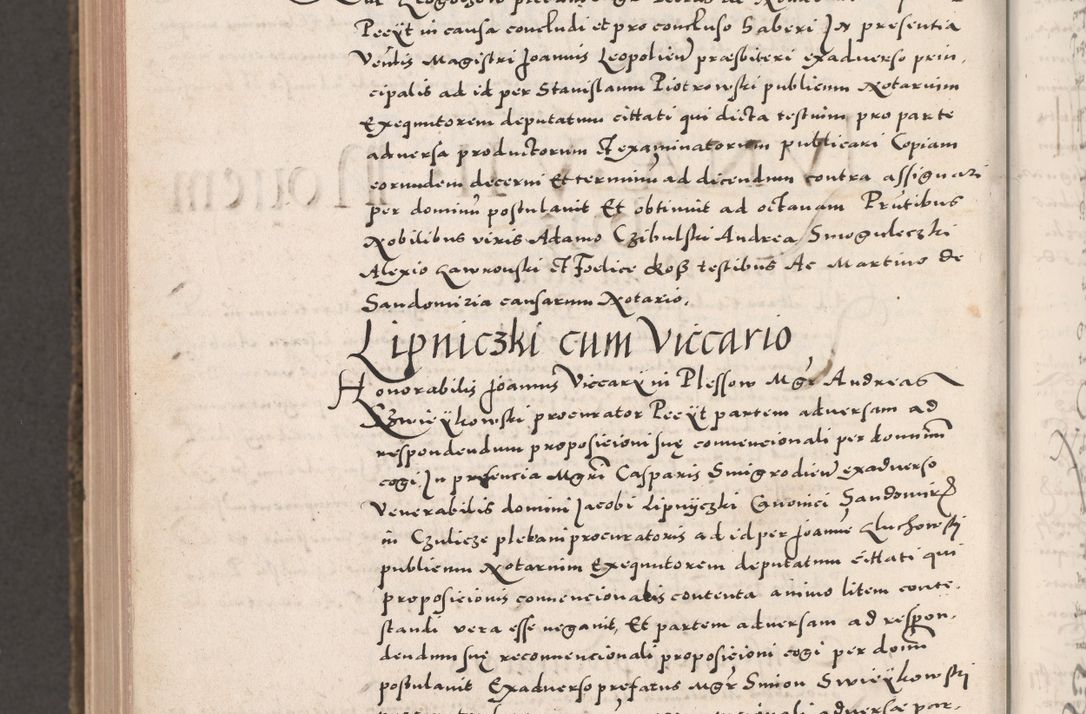 Peeÿt in causa concludi et pro concluso haberi In presentia
Venlis Magistri Joannis Leopolien presbiteri exadverso prin-
cipalis ad id per Stanislaum Piotrowski publicum Notarium
Exequutorem deputatum cittati qui dicta testium pro parte
adversa productorum Et examinatorum publicari Copiam
eorundem decerni Et terminu ad dicendum contra assignari
per dominu postulavit Et obtinuit ad octavam Prntibus
Nobilibus viris Adamo Czibulski Andrea Smoguleczki
Alexio Lawrouski et Foelice Koss testibus Ac Martino de
Sandomiria causarum Notario.
Lipniczki cum Viccario
Honorabilis Joannis Viccarÿ in Plessow Mgr Andreas
Szwieÿkowski procurator Peeÿt partem adversam ad
respondendum proposicioni suę convencionali per dominum
cogi, In presencia Mgri Casparis Smigrodien exadverso
Venerabilis domini Jacobi Lipnÿczki Canonici Sandomir
in Czulicze plebani procuratoris ad id per Joanne Kluchowski
publicum Notarium Exequutorem deputatum cittati qui
proposicionis convencionalis contenta animo litem conte-
standi vera esse negavit, Et partem adversam ad respon-
dendum suę reconvencionali proposicioni cogi per domi
postulavit Exadverso prefatus Mgr Simon Swieÿkowski